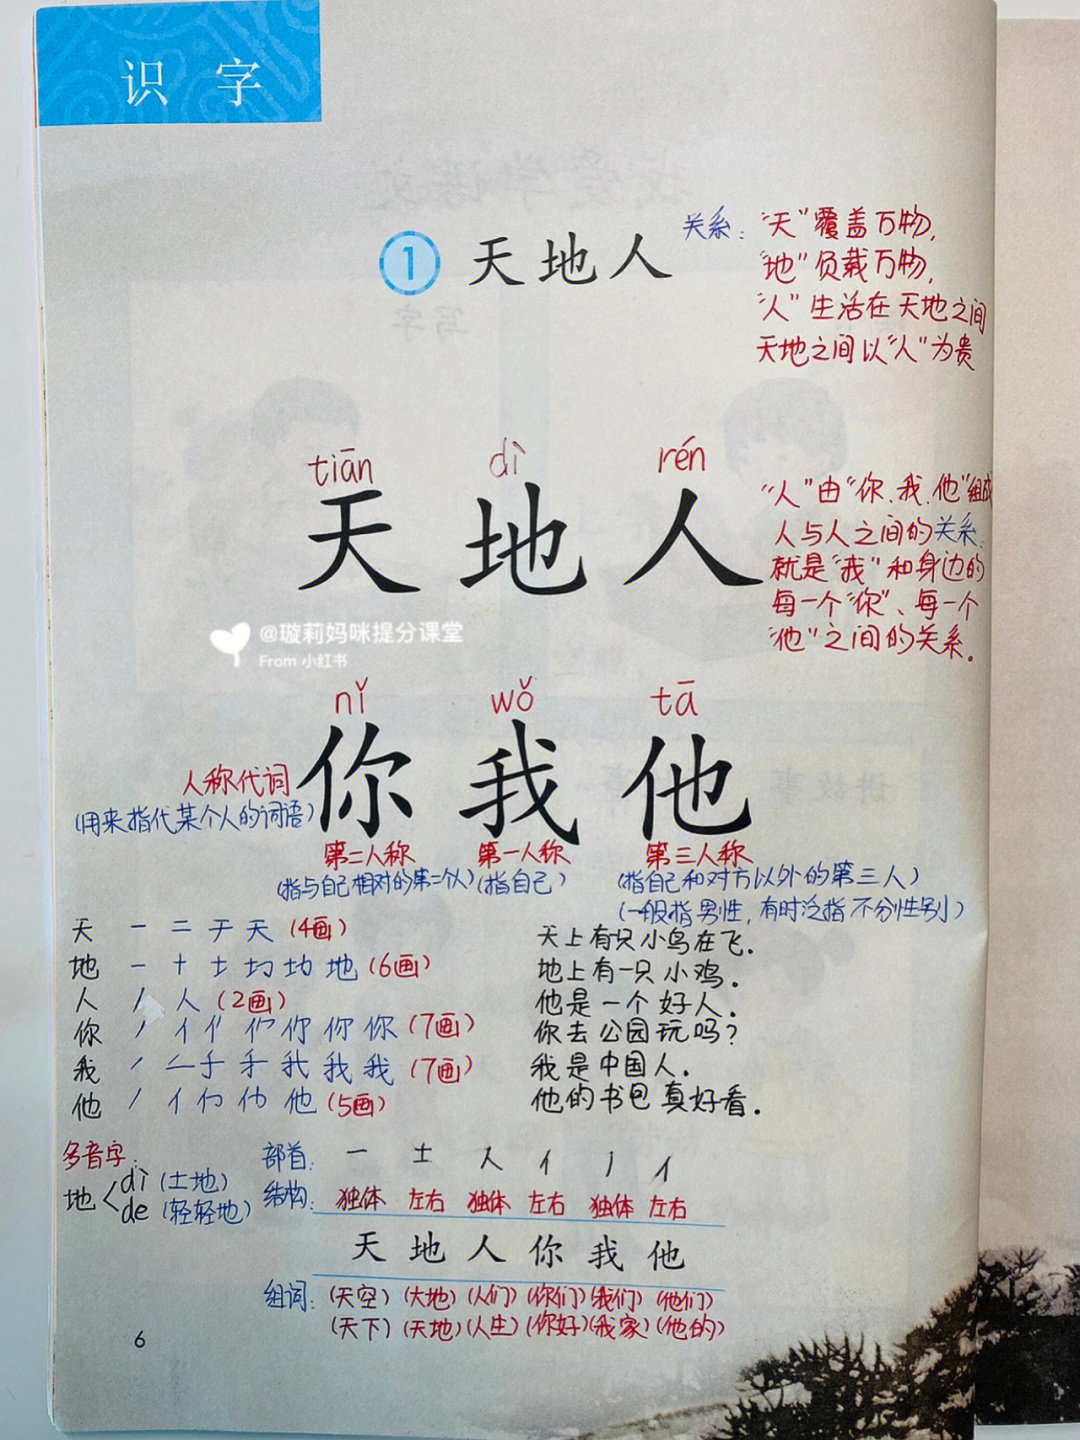 识 字
1 天地人
关系：“天”覆盖万物，
“地”负载万物，
“人”生活在天地之间
天地之间以“人”为贵
tiān dì rén
天 地 人
“人”由“你、我、他”组成
人与人之间的关系：
就是“我”和身边的
每一个“你”、每一个
“他”之间的关系。
@璇莉妈咪提分课堂
From 小红书
nǐ wǒ tā
你 我 他
人称代词
(用来指代某个人的词语)
第二人称 第一人称 第三人称
(指与自己相对的第二个人) (指自己) (指自己和对方以外的第三人)
(一般指男性，有时泛指不分性别)
天 一 二 于 天 (4画)
地 一 十 土 圠 地 (6画)
人 丿 人 (2画)
你 丿 亻 你 你 (7画)
我 丿 二 手 我 我 (7画)
他 丿 亻 他 (5画)
天上有只小鸟在飞.
地上有一只小鸡.
他是一个好人.
你去公园玩吗?
我是中国人.
他的书包真好看.
多音字:
地 dì (土地)
de (轻轻地)
部首: 一 土 人 亻 丿 亻
结构: 独体 左右 独体 左右 独体 左右
天 地 人 你 我 他
组词: (天空) (大地) (人们) (你们) (我们) (他们)
(天下) (天地) (人生) (你好) (我家) (他的)
6